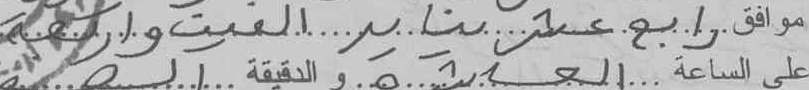 موافق رابع عشر يناير الفين واربعة
على الساعة العاشرة و الدقيقة